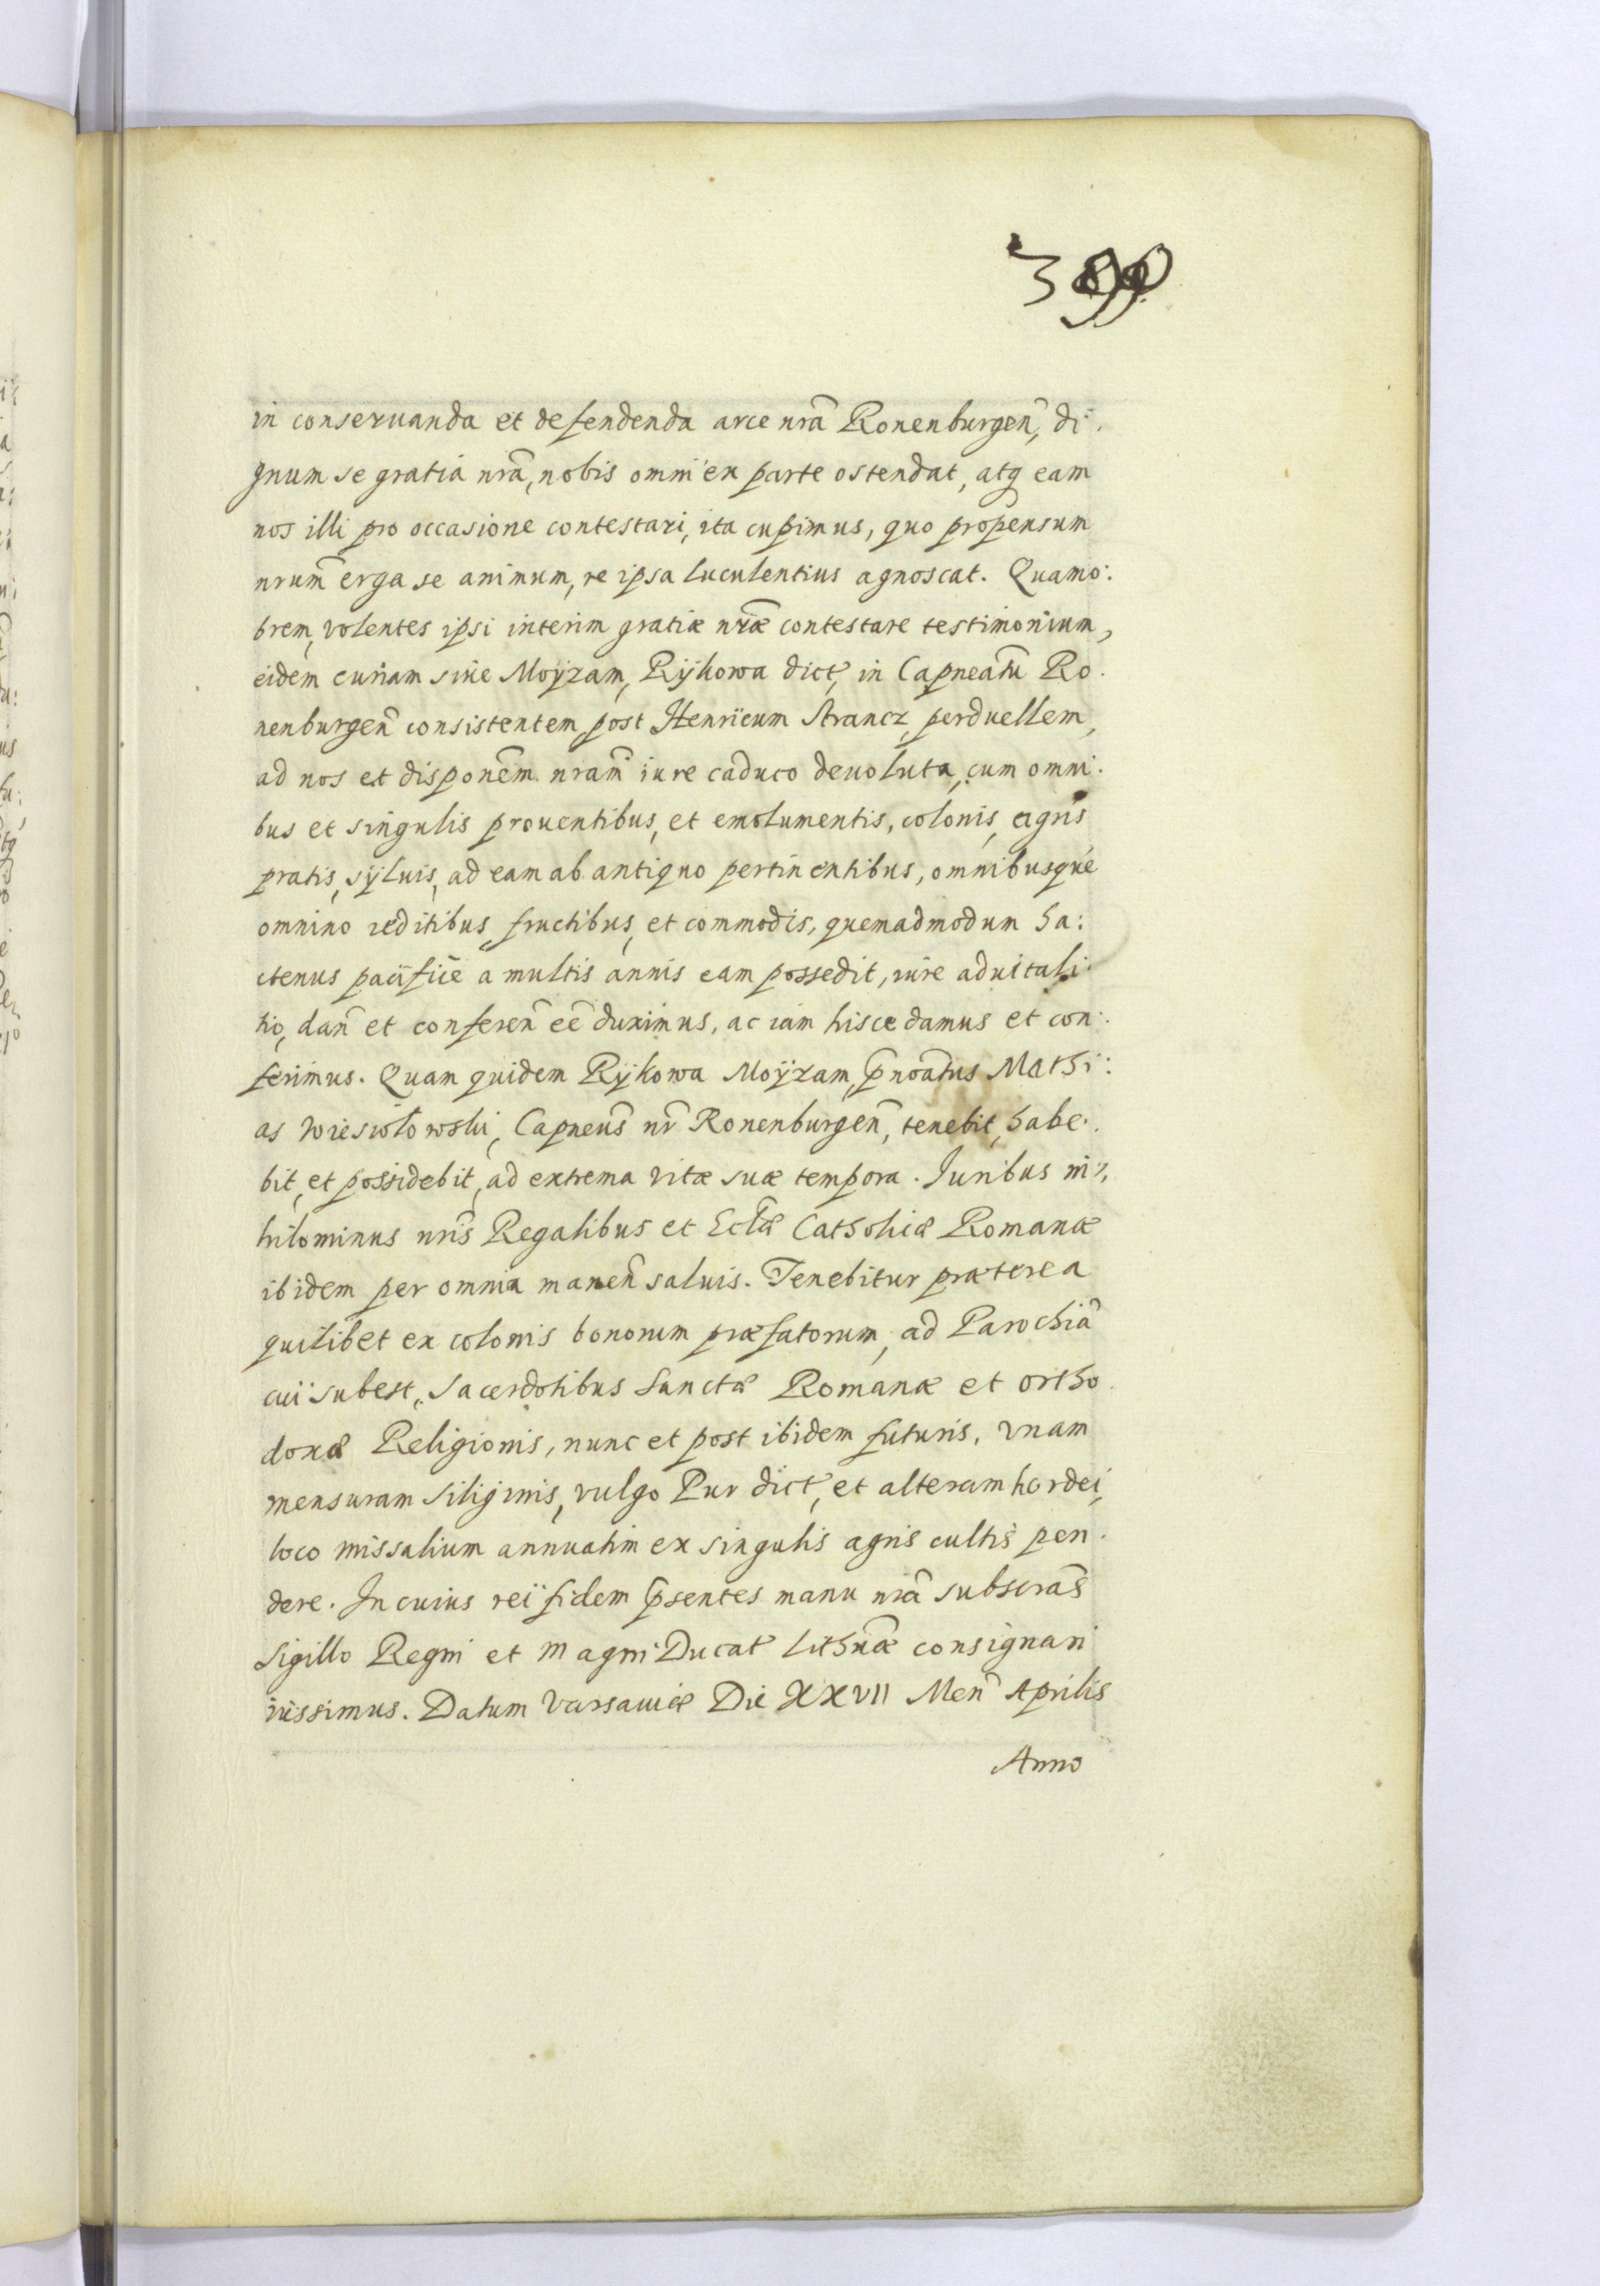 in conseruanda et defendenda arce nrã Ronenburgeñ, di:
gnum se gratia nrã, nobis omni ex parte ostendat, atq eam
nos illi pro occasione contestari, ita cupimus, quo propensum
nrum̃ erga se animum, re ipsa luculentius agnoscat. Quamo:
brem, volentes ipsi interim gratiæ nr̃æ contestare testimonium,
eidem curiam siue Moÿzam, Rÿkowa dict, in Capneatũ Ro:
nenburgeñ consistentem, post Henricum Strancz, perduellem,
ad nos et disponẽm nram̃ iure caduco deuoluta, cum omni:
bus et singulis prouentibus, et emolumentis, colonis, agris
pratis, sÿluis, ad eam ab antiquo pertinentibus, omnibusque
omnino reditibus, fructibus, et commodis, quemadmodum ha:
ctenus pacifice a multis annis eam possedit, iure aduitali:
tio, dañ et confereñ eẽ duximus, ac iam hisce damus et con:
ferimus. Quam quidem Rÿkowa Moÿzam, p̃noãtus Mathi:
as Wiesiołowski, Capneus̃ nr̃ Ronenburgeñ, tenebit, habe:
bit, et possidebit, ad extrema vitæ suæ tempora. Iuribus ni:
hilominus nris̃ Regalibus et Eccl̃æ Catholicæ Romanæ
ibidem per omnia maneñ saluis. Tenebitur præterea
quilibet ex colonis bonorum præfatorum, ad Parochiã
cui subest, Sacerdotibus Sanctæ Romanæ et ortho:
doxæ Religionis, nunc et post ibidem futuris, vnam
mensuram siliginis, vulgo Pur dict, et alteram hordei,
loco missalium annuatim ex singulis agris cultis pen:
dere. In cuius rei fidem p̃sentes manu nrã subscrãs
Sigillo Regni et Magni Ducat Lithnæ̃ consignari
iussimus. Datum Varsauiæ Die XXVII Meñ Aprilis
Anno